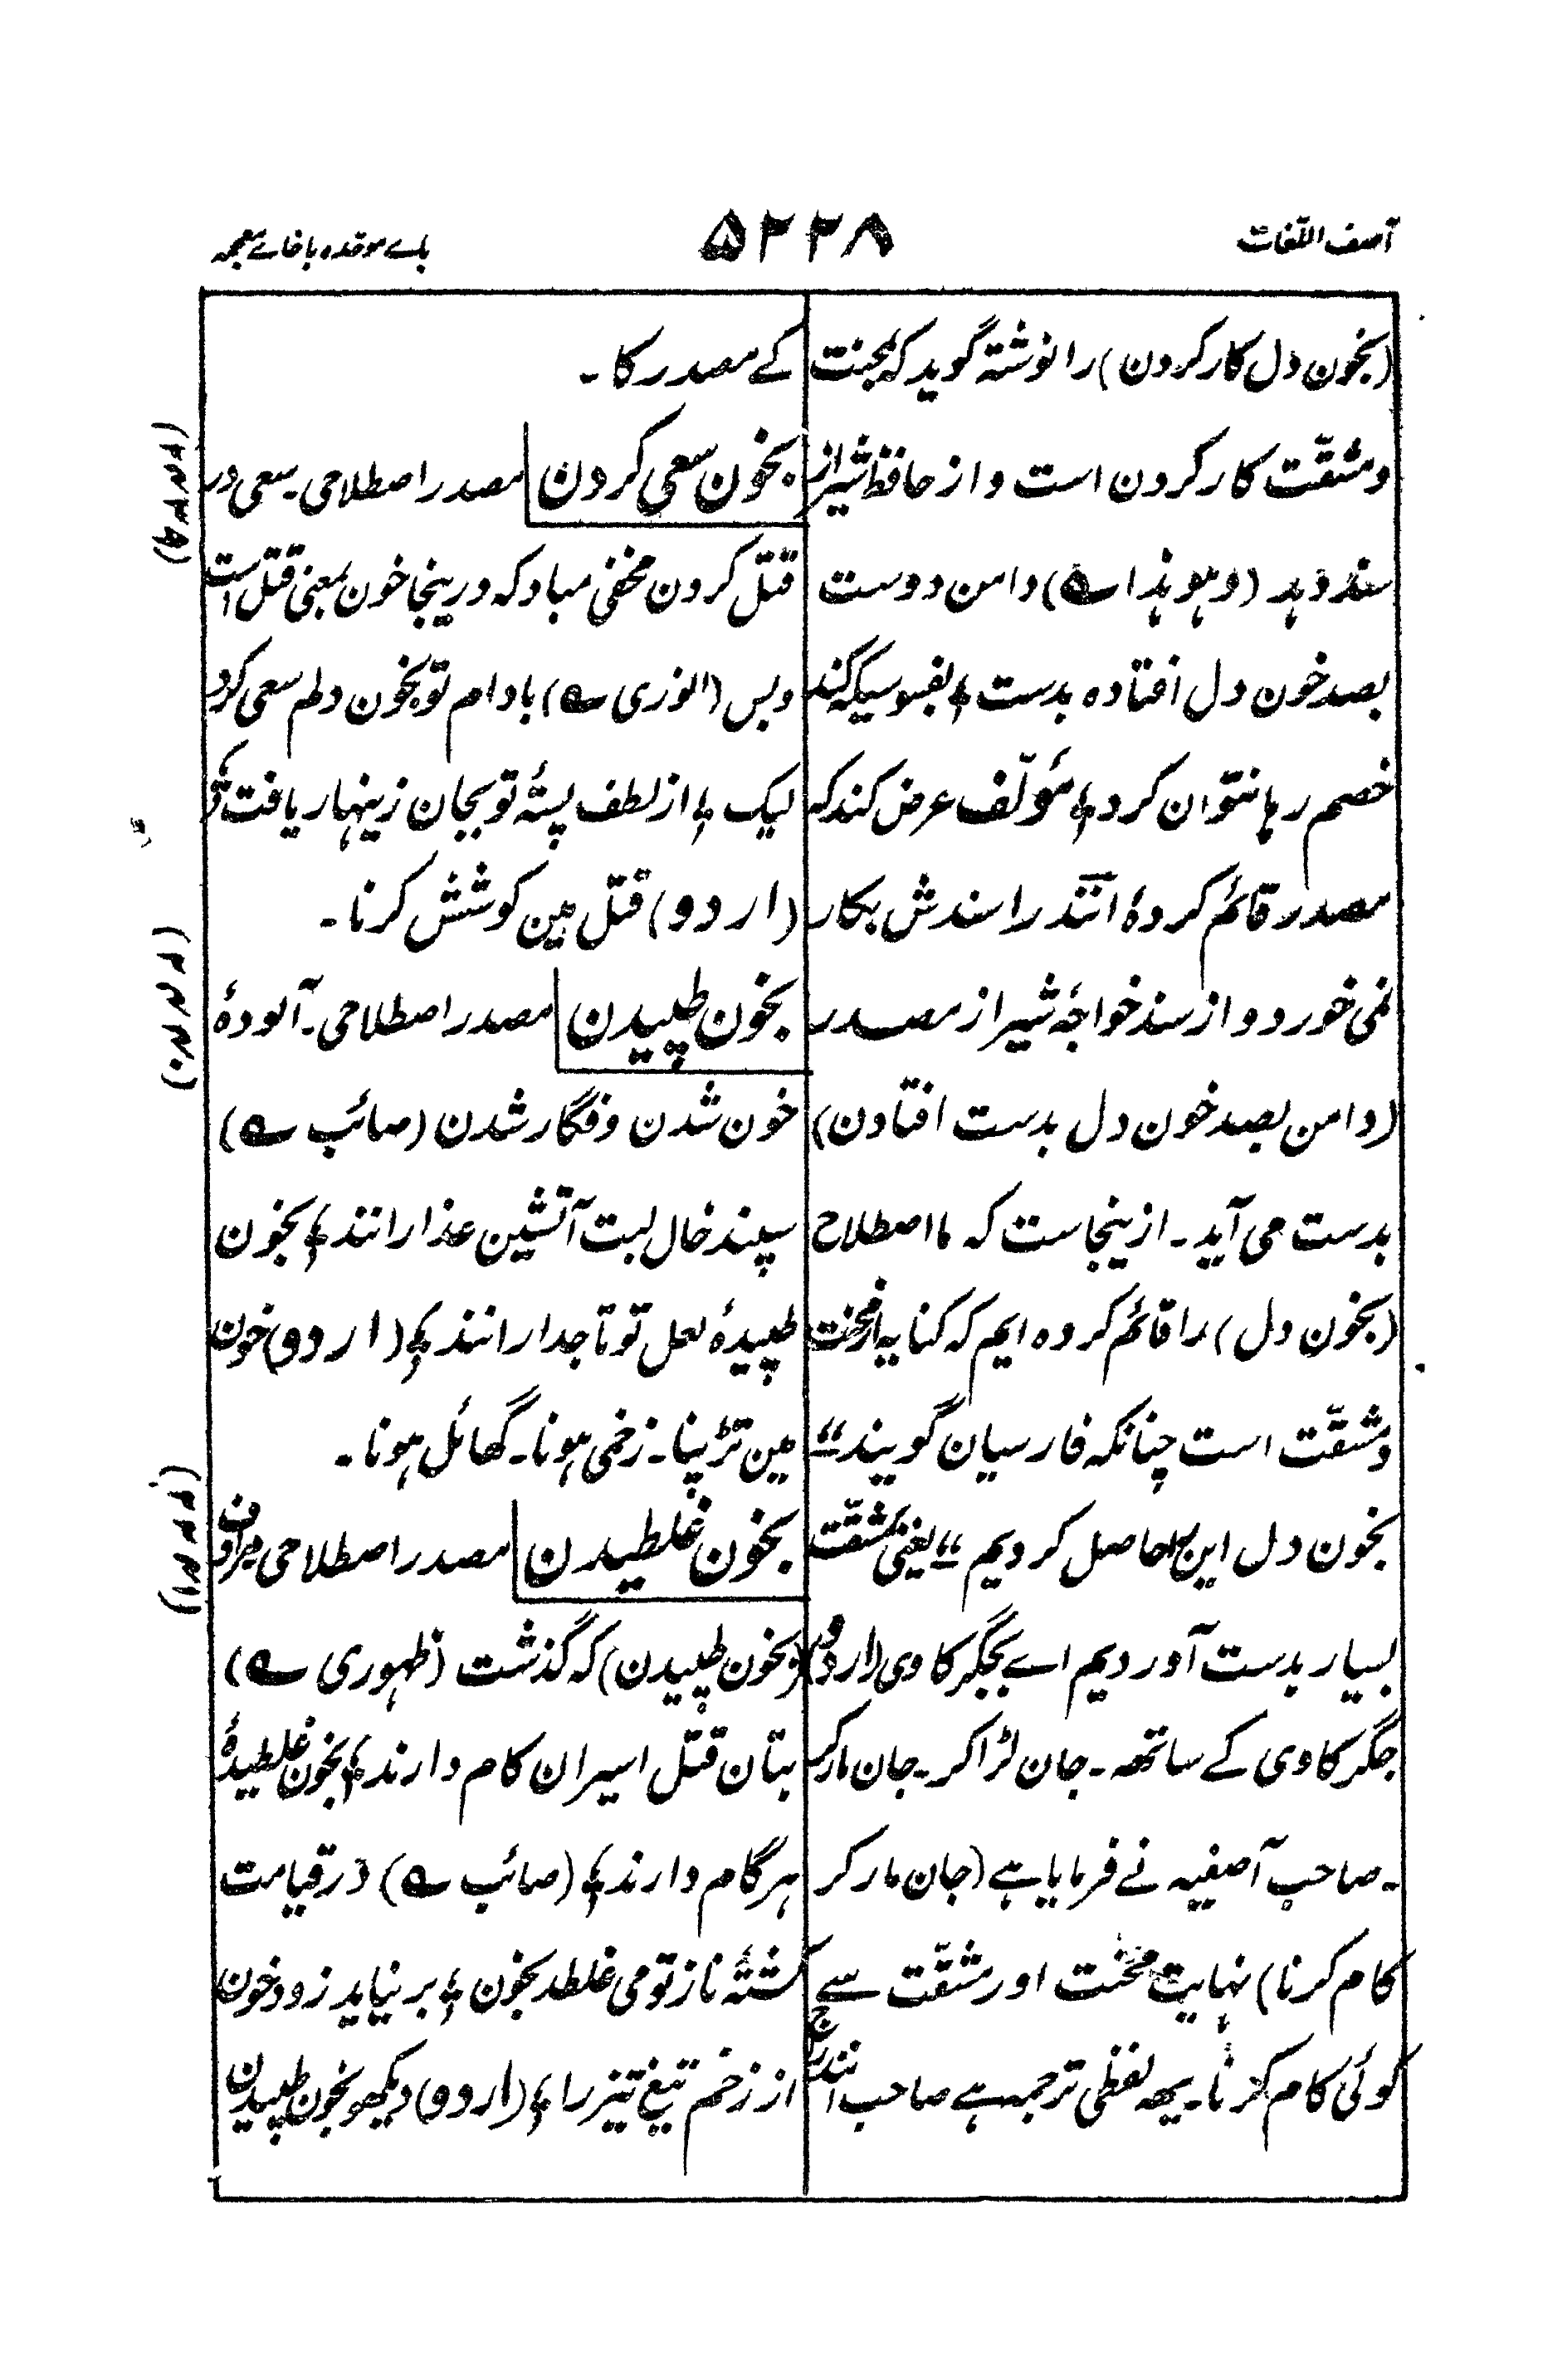 آصف اللّغات
۵۲۲۸
باے موحّدہ باخاے معجمہ
(بخون دل کار کردن) را نوشتہ گوید کہ بمحنت
و مشقّت کار کردن است و از حافظ شیراز
سند دہد (وہو ہذا ؎) دامن دوست
بصد خون دل افتادہ بدست ؛ بفسوسیکہ کند
خصم رہا نتوان کرد ؛ مؤلّف عرض کند کہ
مصدر قائم کردۂ انند را سندش بکار
نمی خورد و از سند خواجۂ شیراز مصدر
(دامن بصد خون دل بدست افتادن)
بدست می آید ۔ ازینجاست کہ ما اصطلاح
(بخون دل) را قائم کردہ ایم کہ کنایہ از محنت
و مشقّت است چنانکہ فارسیان گویند ‟
بخون دل این را حاصل کردیم ” یعنی بمشقّت
بسیار بدست آوردیم اے بجگر کاوی (اردو)
جگر کاوی کے ساتھ ۔ جان لڑا کر ۔ جان مار کر
۔ صاحب آصفیہ نے فرمایا ہے (جان مار کر
کام کرنا) نہایت محنت اور مشقّت سے
کوئی کام کرنا ۔ یہ لفظی ترجمہ ہے صاحب انندراج
کے مصدر کا ۔
بخون سعی کردن مصدر اصطلاحی ۔ سعی در
قتل کردن مخفی مباد کہ درینجا خون بمعنی قتل است
و بس (انوری ؎) بادام تو بخون دلم سعی کرد
لیک ؛ از لطف پستۂ تو بجان زینہار یافت ؛
(اردو) قتل مین کوشش کرنا ۔
بخون طپیدن مصدر اصطلاحی ۔ آلودۂ
خون شدن و فگار شدن (صائب ؎)
سپند خال لبت آتشین عذارانند ؛ بخون
طپیدۂ لعل تو تاجدارانند ؛ (اردو) خون
مین تڑپنا ۔ زخمی ہونا ۔ گھائل ہونا ۔
بخون غلطیدن مصدر اصطلاحی مرادف
(بخون طپیدن) کہ گذشت (ظہوری ؎)
بتان قتل اسیران کام دارند ؛ بخون غلطیدۂ
ہر گام دارند ؛ (صائب ؎) در قیامت
کشتۂ ناز تو می غلطد بخون ؛ بر نیاید زود خون
از زخم تیغ تیز را ؛ (اردو) دیکھو بخون طپیدن